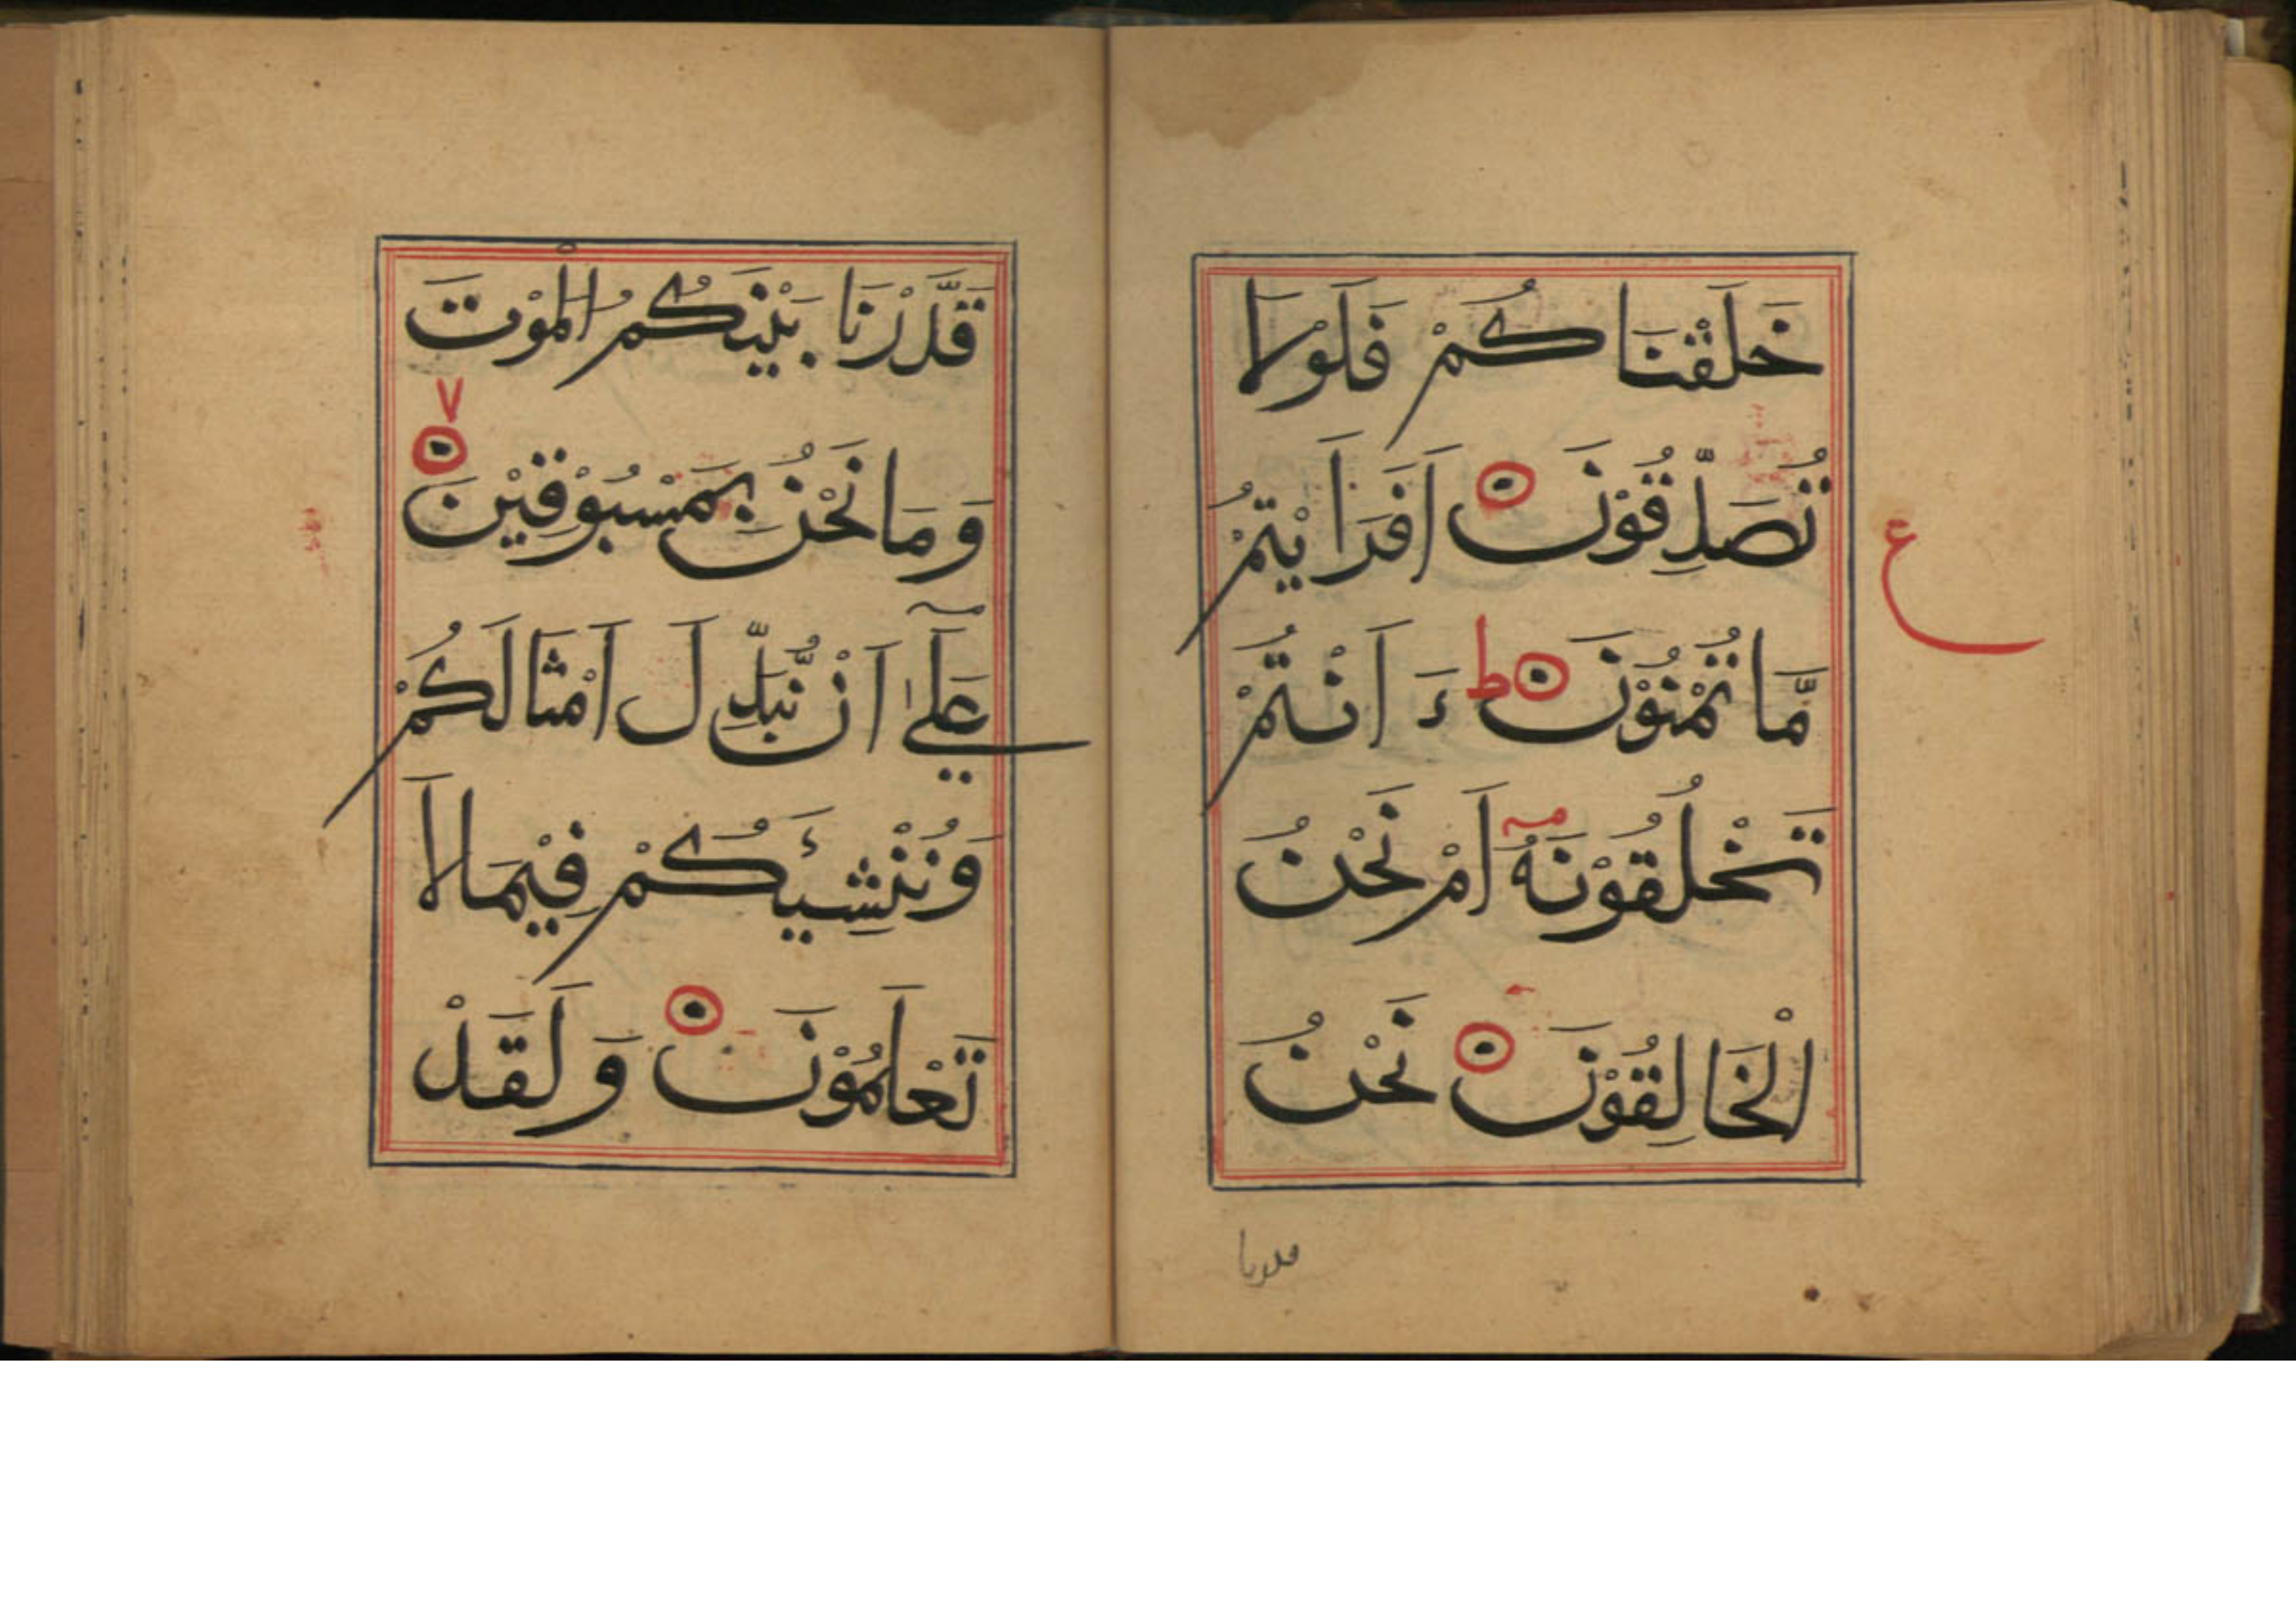 خَلَقْنَاكُمْ فَلَوْلَا
تُصَدِّقُوْنَ اَفَرَاَيْتُمْ
ع
مَّا تُمْنُوْنَ ط ءَ اَنْتُمْ
تَخْلُقُوْنَهٗٓ اَمْ نَحْنُ
الْخَالِقُوْنَ نَحْنُ
قدرنا
قَدَّرْنَا بَيْنَكُمُ الْمَوْتَ
٧
وَمَا نَحْنُ بِمَسْبُوْقِيْنَ
عَلٰٓي اَنْ نُّبَدِّلَ اَمْثَالَكُمْ
وَنُنْشِئَكُمْ فِيْمَا لَا
تَعْلَمُوْنَ وَلَقَدْ